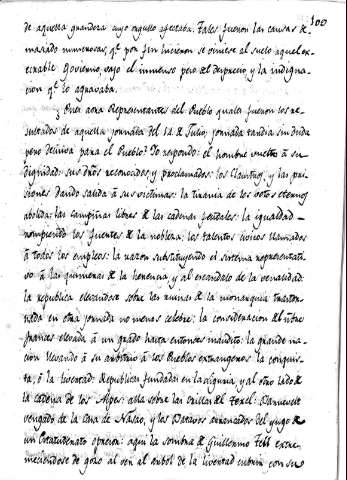 100
de aquella grandeza cuyo orgullo afectaba. Tales fueron las causas de-
masiado numerosas, qᵉ por fin hicieron se viniese al suelo aquel ex-
ecrable Govierno, vajo el inmenso peso del desprecio, y la indigna-
cion qᵉ lo agravaba.
¿Pues aora Representantes del Pueblo quales fueron los re-
sultados de aquella jornada del 14 de Julio, jornada tardia sin duda
pero decisiva para el Pueblo? Yo respondo: el hombre vuelto á su
dignidad: sus dros reconocidos y proclamados: los claustros, y las pri-
siones dando salida á sus victimas: la tirania de los votos eternos
abolida: las campiñas libres de las cadenas feudales: la igualdad
rompiendo las fuentes de la nobleza: los talentos civicos llamados
á todos los empleos: la razon substituyendo el sistema representati-
vo á las quimeras de la herencia, y al escandalo de la venalidad:
la republica elevandose sobre las ruinas de la monarquia trastor-
nada en otra jornada no menos celebre: la consideracion del nõbre
frances elevada á un grado hasta entonces inaudito: la grande na-
cion llevando á su arbitrio á los Pueblos extrangeros la conquis-
ta, ó la livertad: Republicas fundadas en la Liguria y al otro lado de
la cadena de los Alpes: alla sobre las orillas de Texel: Barnevelt
vengado de la Casa de Nasao, y los Batavos arrancados del yugo de
un Estatuderato opresor: aqui la sombra de Guillermo Tell extre-
meciendose de gozo al ver al arbol de la livertad cubrir con su